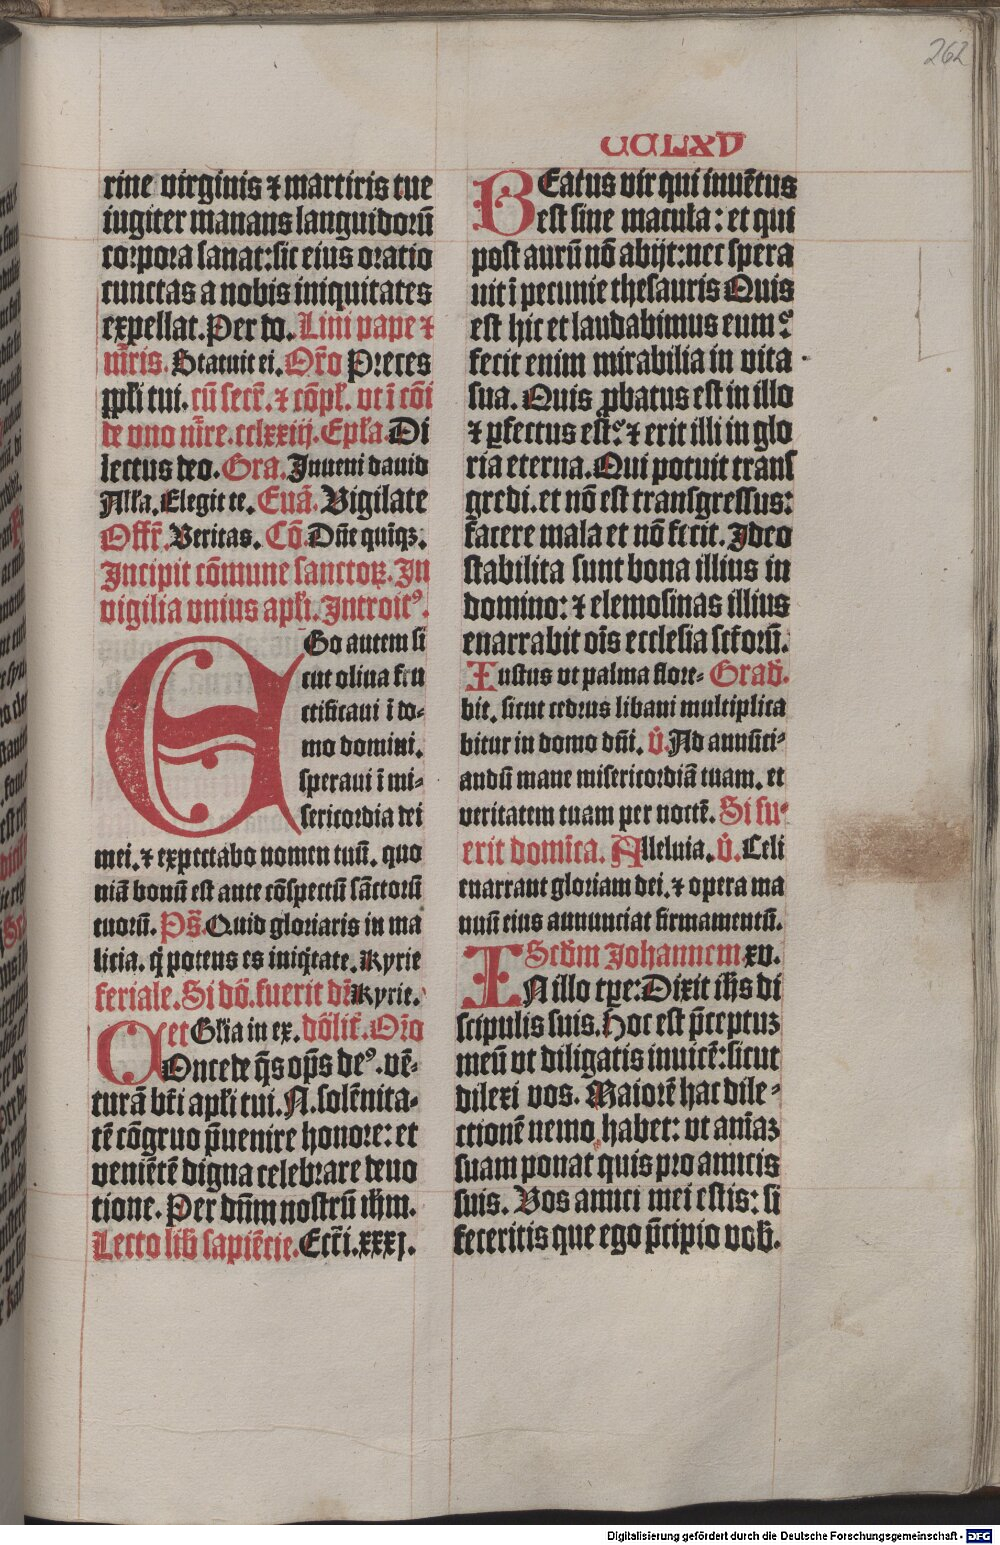 262
rine virginis ⁊ martiris tue
iugiter manans languidorū
corpora sanat: sic eius oratio
cunctas a nobis iniquitates
expellat. Per do. Lini pape ⁊
m̄ris. Statuit ei. Or̄o Preces
ppl̄i tui. cū secr̄. ⁊ cōpl̄. vt ī cōi
de vno m̄re. cclxxiij. Epl̄a. Di
lectus deo. Gra. Inueni dauid
Alla. Elegit te. Euā. Vigilate
Offr̄. Veritas. Cō. Dn̄e quinqꝫ.
Incipit cōmune sanctoꝝ. In
vigilia vnius apl̄i. Introitꝰ.
EGo autem si
cut oliua fru
ctificaui ī do-
mo domini.
speraui ī mi-
sericordia dei
mei. ⁊ expectabo nomen tuū. quo
niā bonū est ante cōspectū sāctorū
tuorū. Ps̄. Quid gloriaris in ma
licia. q̇ potens es iniq̇tate. Kyrie
feriale. Si dō. fuerit dr̄ Kyrie.
et Gl̄ia in ex. dōlit̄. Or̄o
COncede q̄s op̄s deꝰ. vē-
turā bt̄i apl̄i tui. N. solēnita-
tē cōgruo p̄uenire honore: et
veniētē digna celebrare deuo
tione. Per dn̄m nostrū ih̄m.
Lectō lib̄ sapiētie. Ecc̄i. xxxj.
BEatus vir qui inuētus
est sine macula: et qui
post aurū nō abijt: nec spera
uit ī pecunie thesauris Quis
est hic et laudabimus eum?
fecit enim mirabilia in vita
sua. Quis ꝓbatus est in illo
⁊ ꝑfectus est? ⁊ erit illi in glo
ria eterna. Qui potuit trans
gredi. et nō est transgressus:
facere mala et nō fecit. Ideo
stabilita sunt bona illius in
domino: ⁊ elemosinas illius
enarrabit oīs ecclesia sc̄torū.
Iustus vt palma flore- Grad̄.
bit. sicut cedrus libani multiplica
bitur in domo dn̄i. v̄. Ad annūci-
andū mane misericordiā tuam. et
veritatem tuam per noctē. Si fu-
erit domīca. Alleluia. v̄. Celi
enarrant gloriam dei. ⁊ opera ma
nuū eius annunciat firmamentū.
Scd̄m Johannem xv.
IN illo tꝑe: Dixit ih̄s di
scipulis suis. Hoc est p̄ceptuꝫ
meū vt diligatis inuicē: sicut
dilexi vos. Maiorē hac dile-
ctionē nemo habet: vt anīaꝫ
suam ponat quis pro amicis
suis. Vos amici mei estis: si
feceritis que ego p̄cipio vob̄.
Digitalisierung gefördert durch die Deutsche Forschungsgemeinschaft - DFG